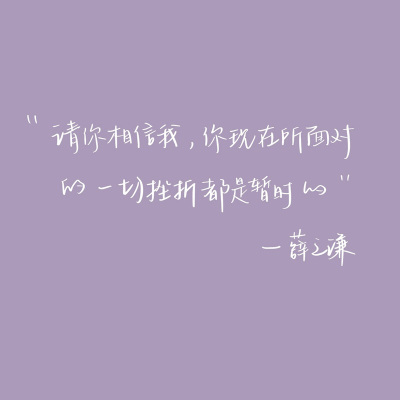 “请你相信我，你现在所面对
的一切挫折都是暂时的”
—薛之谦